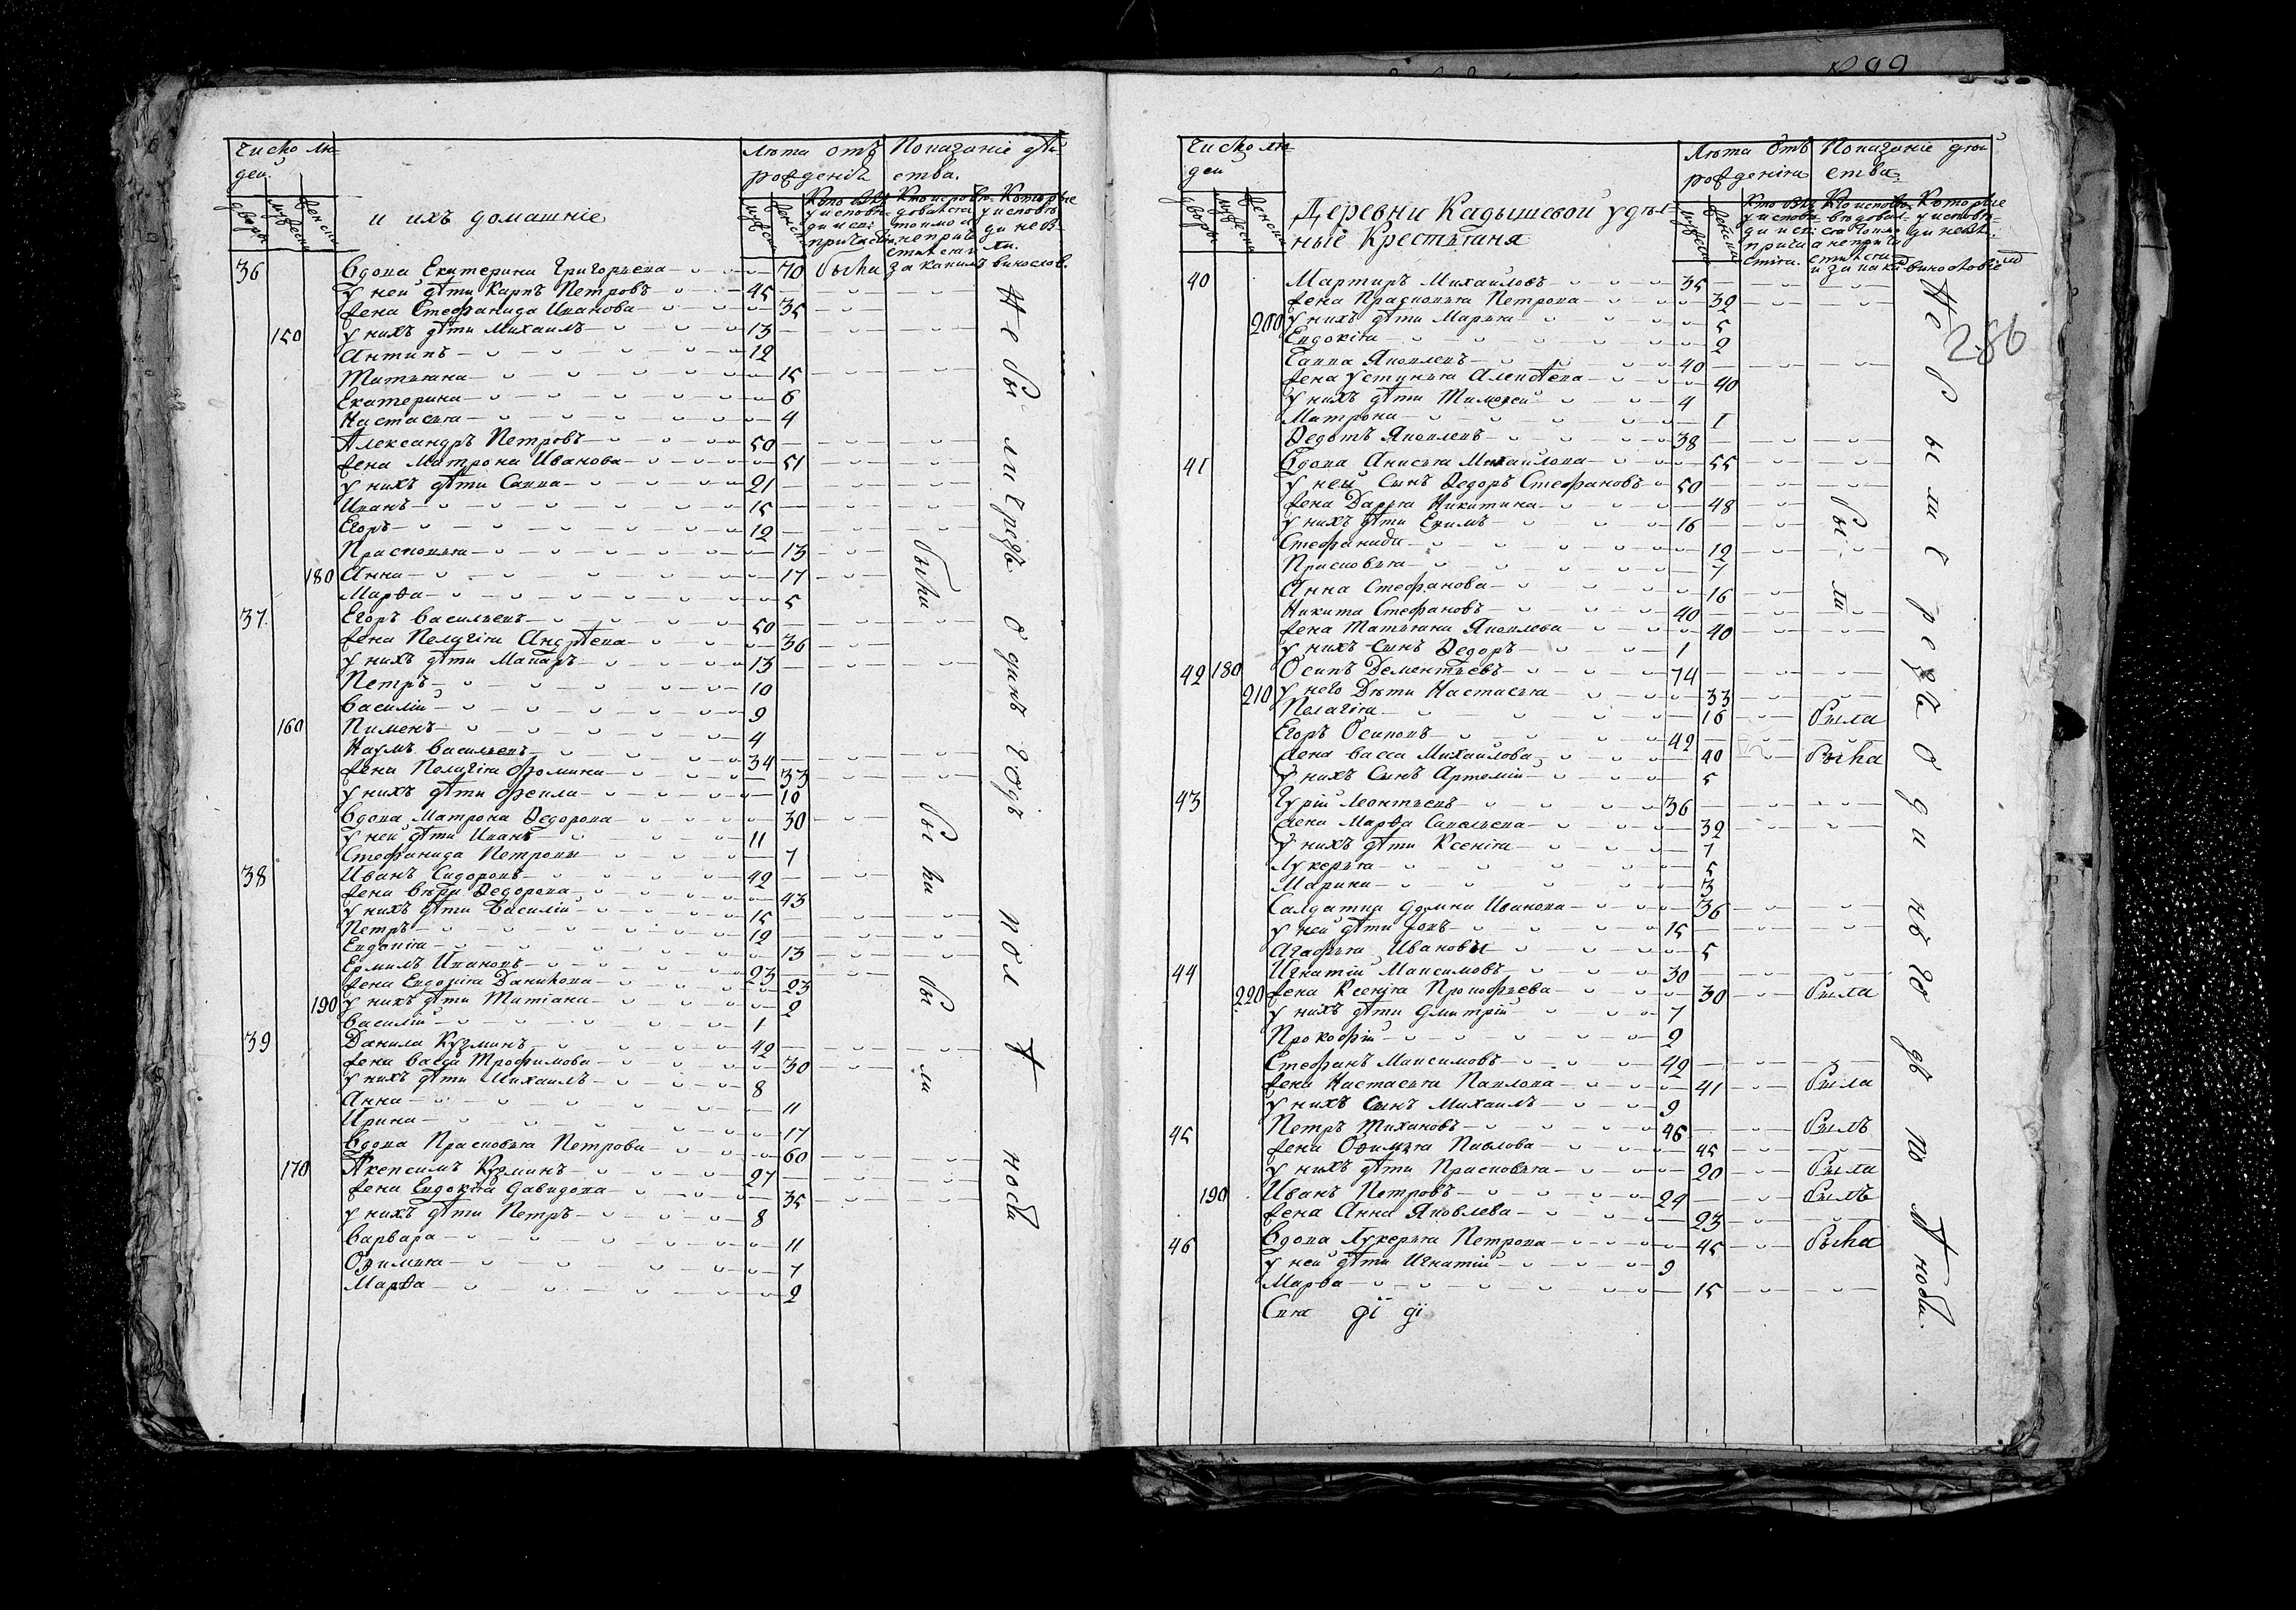 Число лю-
дей.
дворы
мужеска
женска
и ихъ домашніе
Лѣта отъ
рожденія
мужеска
женска
Показаніе дѣй-
ства.
36 Вдова Екатерина Григорьева 70 была
У ней дѣти Карпъ Петровъ 45
жена Стефанида Иванова 35
150 У нихъ дѣти Михаилъ 13
Антипъ 12
Татьяна 15
Екатерина 6
Настасья 4
Александръ Петровъ 50
жена Матрона Иванова 51
У нихъ дѣти Савва 21
Иванъ 15
Егоръ 12
Прасковья 13
180 Анна 17
Марѳа 5
37 Егоръ Васильевъ 50
жена Пелагія Андрѣева 36
У нихъ дѣти Макаръ 13
Петръ 10
Василій 9
160 Пименъ 4
Наумъ Васильевъ 34
жена Пелагія Фомина 33
У нихъ дѣти Фекла 10
Вдова Матрона Ѳедорова 30
У ней дѣти Иванъ 11
Стефанида Петровы 7
38 Иванъ Сидоровъ 42
жена Вѣра Ѳедорова 43
У нихъ дѣти Василій 15
Петръ 12
Евдокія 13
Ермилъ Ивановъ 23
жена Евдокія Данилова 23
190 У нихъ дѣти Татіана 2
Василій 1
39 Данила Кузминъ 42
жена Васса Трофимова 30
У нихъ дѣти Михаилъ 8
Анна 11
Ирина 17
Вдова Прасковья Петрова 60
170 Акепсимъ Кузминъ 27
жена Евдокія Давидова 35
У нихъ дѣти Петръ 8
Варвара 11
Офимья 7
Марѳа 2
были
были
Не были чрезъ одинъ годъ
Число лю-
дей
дворы
мужеска
женска
Деревни Кадышевой удѣль-
ные Крестьяня
Лѣта отъ
рожденія
мужеска
женска
Показаніе дѣй-
ства.
286
40 Мартиръ Михайловъ 35
жена Прасковья Петрова 32
200 У нихъ дѣти Марья 5
Евдокія 2
Савва Яковлевъ 40
жена Устинья Алексѣева 40
У нихъ дѣти Тимоѳей 4
Матрона 1
Ѳедотъ Яковлевъ 38
41 Вдова Анисья Михайлова 55
У ней Сынъ Ѳедоръ Стефановъ 50
жена Дарья Никитина 48
У нихъ дѣти Екимъ 16
Стефанида 12
Прасковья 7
Анна Стефанова 16
Никита Стефановъ 40
жена Татьяна Яковлева 40
У нихъ Сынъ Ѳедоръ 1
42 180 Осипъ Дементьевъ 74
210 У него Дѣти Настасья 33
Пелагія 16 была
Егоръ Осиповъ 42
жена Васса Михайлова 40 была
У нихъ Сынъ Артемій 5
43 Гурій Леонтьевъ 36
жена Марѳа Савельева 32
У нихъ дѣти Ксенія 7
Лукерья 5
Марина 3
Салдатка Домна Иванова 36
У ней дѣти Іовъ 15
Агафья Ивановы 5
44 Игнатій Максимовъ 30
220 жена Ксенія Прокофьева 30 была
У нихъ дѣти Дмитрій 7
Прокофій 2
Стефанъ Максимовъ 42
жена Настасья Павлова 41 была
У нихъ Сынъ Михаилъ 9
45 Петръ Тихановъ 46 былъ
жена Офимья Павлова 45
У нихъ дѣти Прасковья 20 была
190 Иванъ Петровъ 24 былъ
жена Анна Яковлева 23
46 Вдова Лукерья Петрова 45 была
У ней дѣти Игнатій 9
Марѳа 15
были